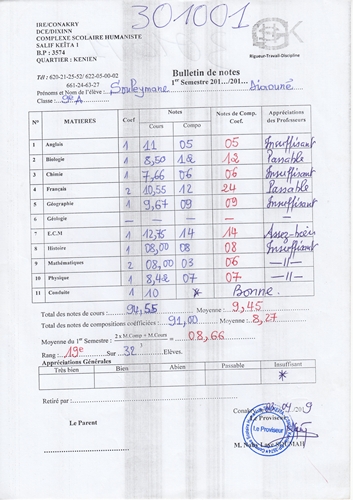 301001
IRE/CONAKRY
DCE/DIXINN
COMPLEXE SCOLAIRE HUMANISTE
SALIF KEÏTA 1
B.P : 3574
QUARTIER : KENIEN
Rigueur-Travail-Discipline
Tél : 620-21-25-52/ 622-05-00-02
661-24-63-27
Bulletin de notes
1er Semestre 201…/201…
Prénoms et Nom de l'élève : Souleymane Diaouné
Classe : 9e A
N° MATIERES Coef Notes Cours Compo Notes de Comp. Coef Appréciations des Professeurs
1 Anglais 1 11 05 05 Insuffisant
2 Biologie 1 8,50 12 12 Passable
3 Chimie 1 7,66 06 06 Insuffisant
4 Français 2 10,55 12 24 Passable
5 Géographie 1 9,67 09 09 Insuffisant
6 Géologie — — — — —
7 E.C.M 1 12,75 14 14 Assez-bien
8 Histoire 1 08,00 08 08 Insuffisant
9 Mathématiques 2 08,00 03 06 —//—
10 Physique 1 8,42 07 07 —//—
11 Conduite 1 10 * Bonne.
Total des notes de cours : 94,55 Moyenne : 9,45
Total des notes de compositions coéfficiées : 91,00 Moyenne : 8,27
Moyenne du 1er Semestre : 2 x M.Comp + M.Cours / 3 = 08,66
Rang : 19e Sur 32 Elèves.
Appréciations Générales
Très bien Bien Abien Passable Insuffisant
*
Retiré par :
Le Parent
Le Proviseur
Le Proviseur